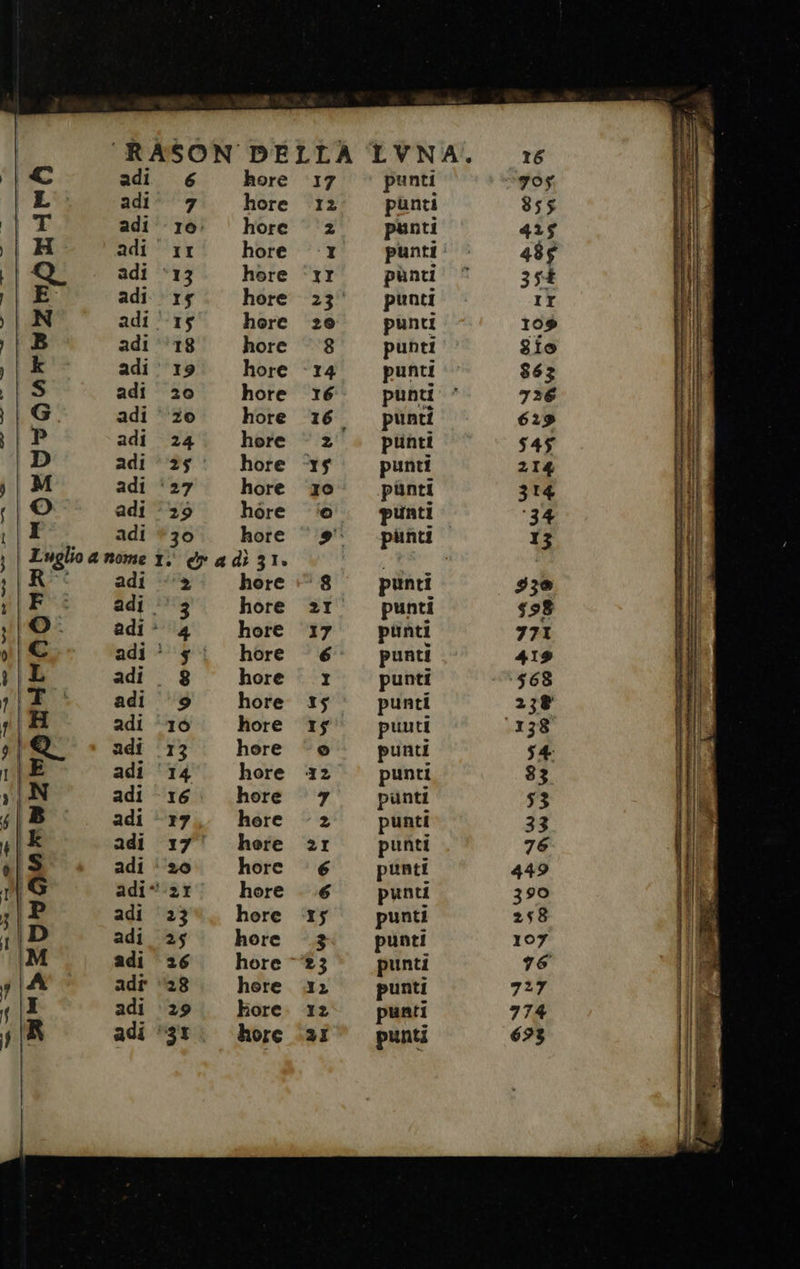 RASON DELLA LVNA. 16
C adi 6 hore 17 punti 705
L adi 7 hore 12 punti 855
T adi 10 hore 2 punti 425
H adi 11 hore 1 punti 485
Q adi 13 hore 11 punti 351
E adi 15 hore 23 punti 11
N adi 15 hore 20 punti 109
B adi 18 hore 8 punti 810
k adi 19 hore 14 punti 863
S adi 20 hore 16 punti 726
G adi 20 hore 16 punti 629
P adi 24 hore 2 punti 545
D adi 25 hore 15 punti 214
M adi 27 hore 10 punti 314
O adi 29 hore 0 punti 34
I adi 30 hore 9 punti 13
Luglio a nome 1. & a dì 31.
R adi 2 hore 8 punti 930
F adi 3 hore 21 punti 598
O adi 4 hore 17 punti 771
C adi 5 hore 6 punti 419
L adi 8 hore 1 punti 568
T adi 9 hore 15 punti 238
H adi 10 hore 15 punti 138
Q adi 13 hore 0 punti 54
E adi 14 hore 12 punti 83
N adi 16 hore 7 punti 53
B adi 17 hore 2 punti 33
k adi 17 hore 21 punti 76
S adi 20 hore 6 punti 449
G adi 21 hore 6 punti 390
P adi 23 hore 15 punti 258
D adi 25 hore 3 punti 107
M adi 26 hore 23 punti 76
A adi 28 hore 12 punti 727
I adi 29 hore 12 punti 774
R adi 31 hore 21 punti 693